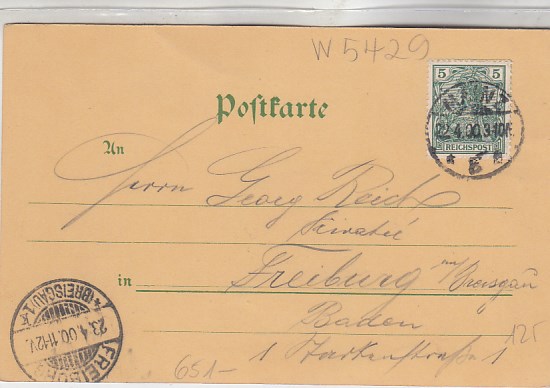 W 5429
5 5
REICHSPOST
22.4.00.3-10N.
* g *
Postkarte
An
Herrn Georg Reich
Privatié
in Freiburg im/Breisgau
Baden
1 1
(BREISGAU) 1
23.4.00.11-12V.
FREIBURG
651-
125